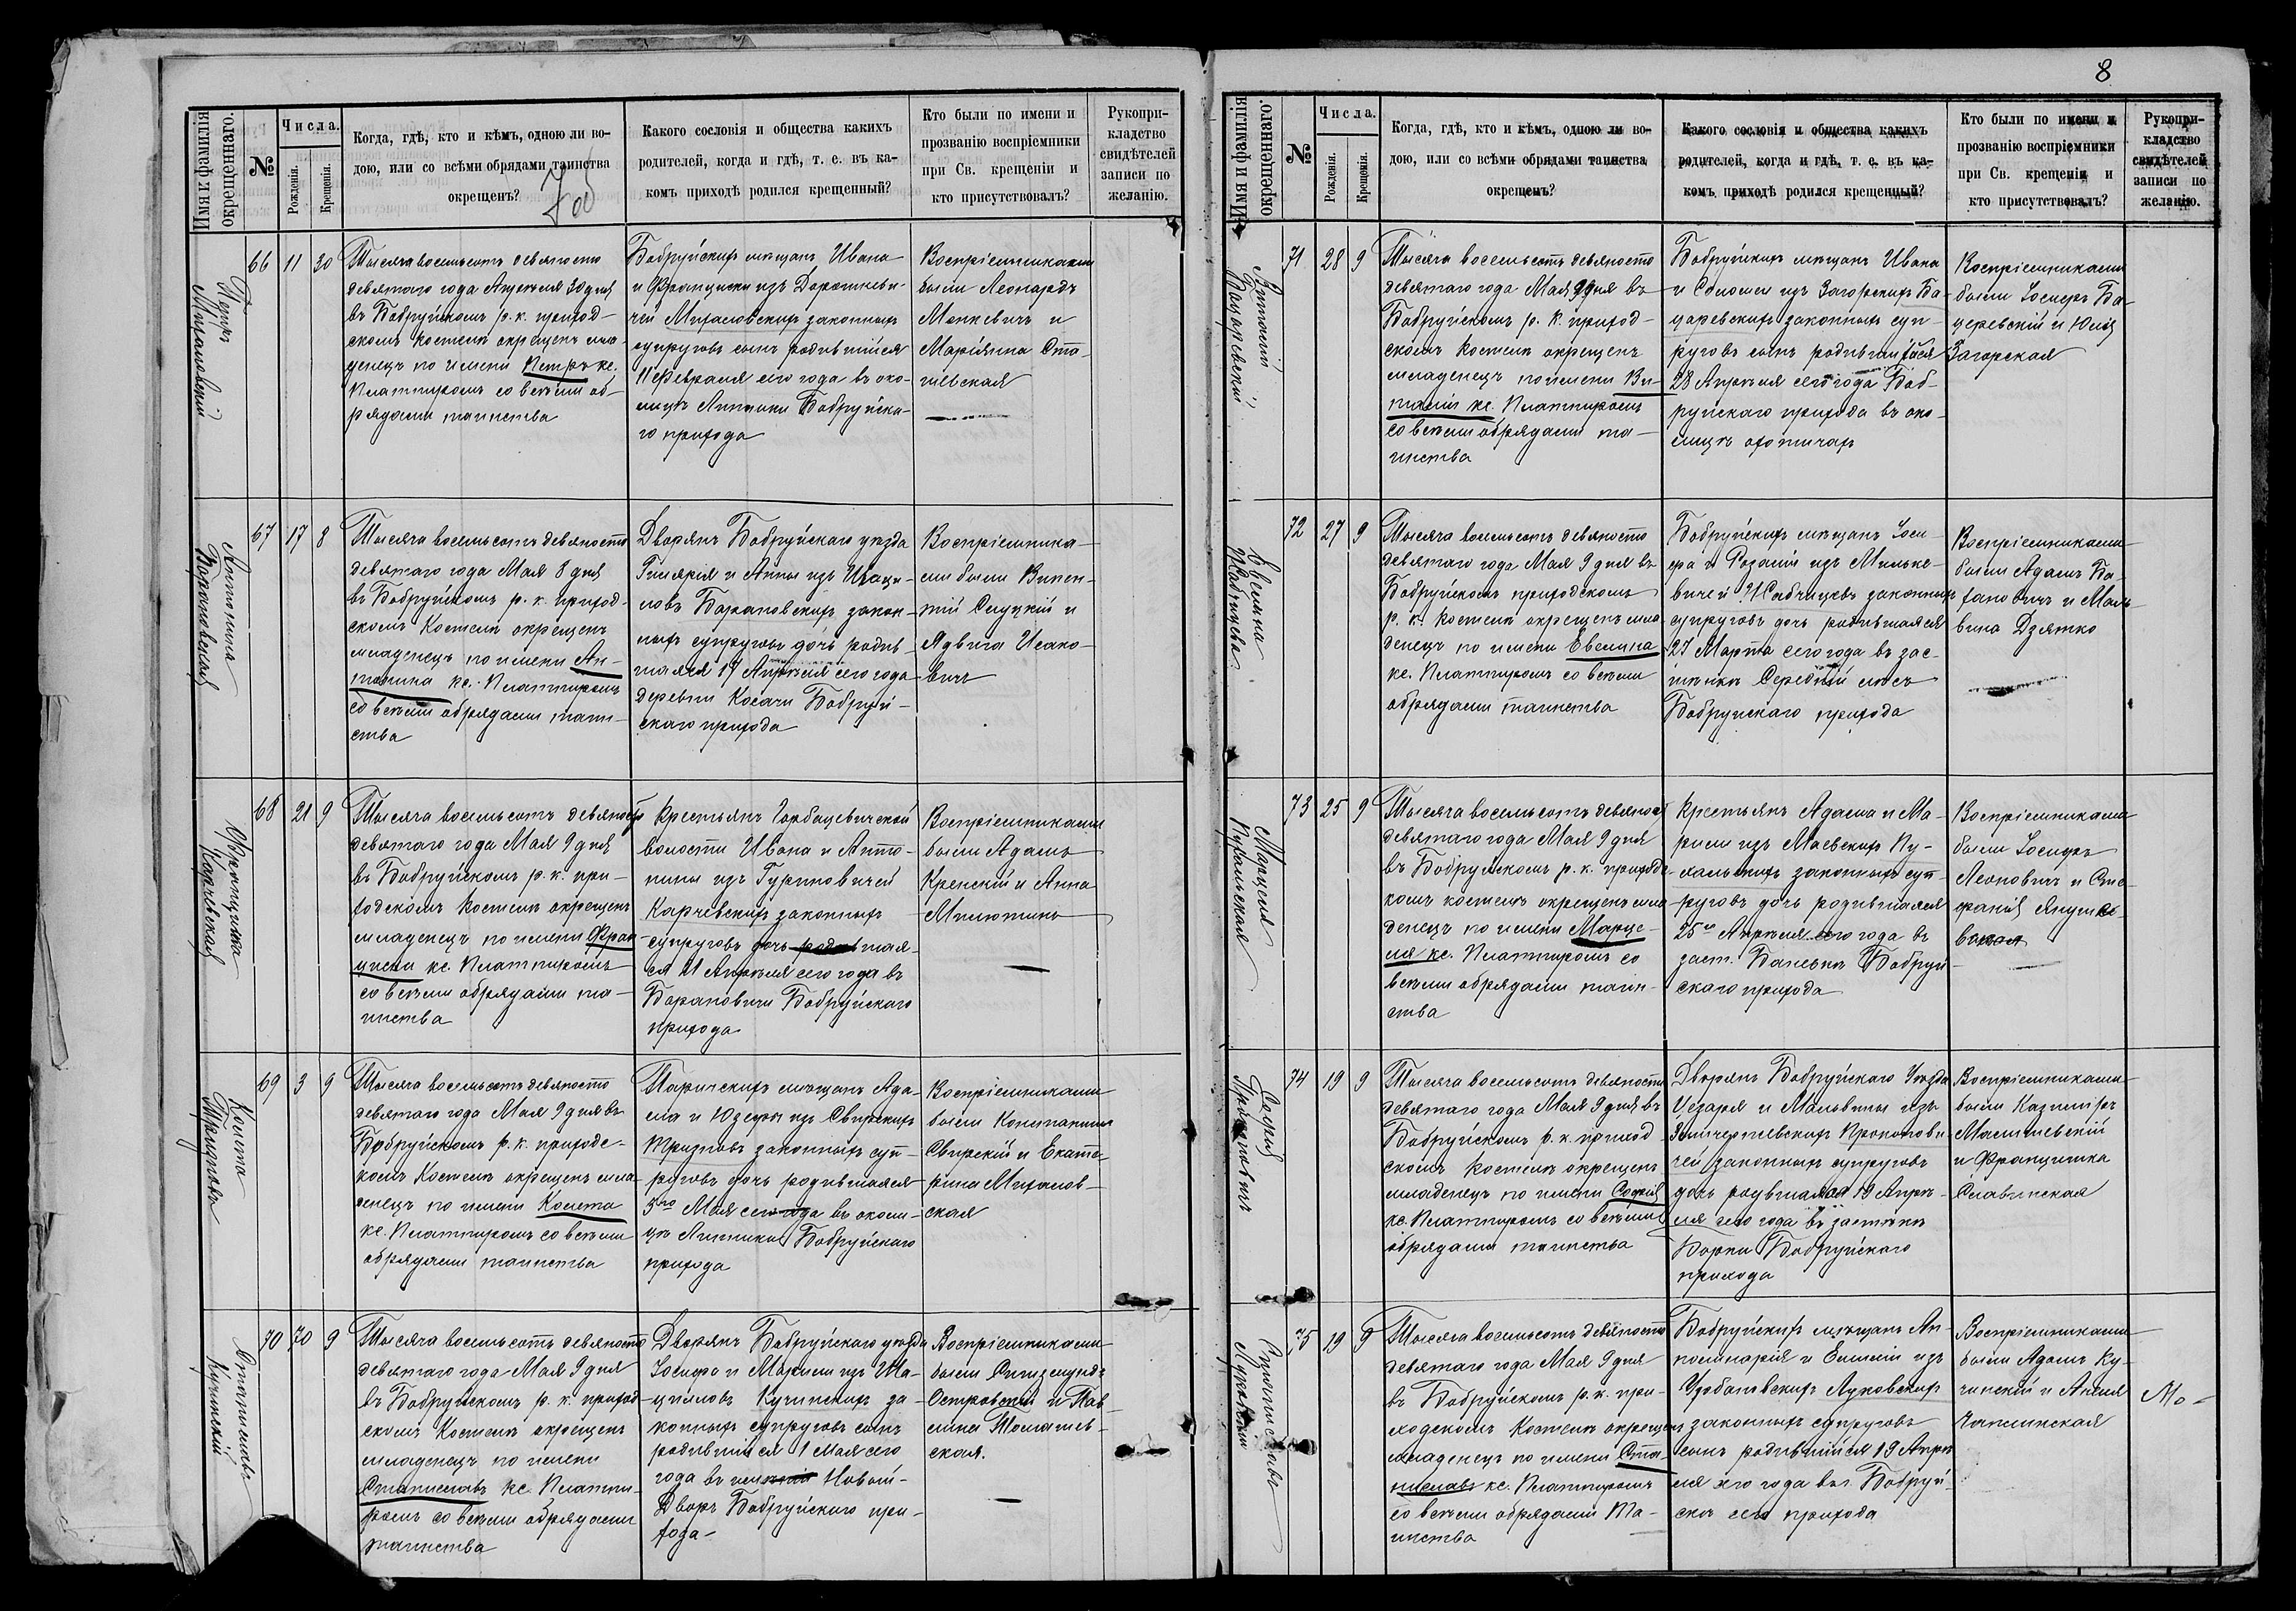 8
Имя и фамилія
окрещеннаго.
№
Числа.
Рожденія.
Крещенія.
Когда, гдѣ, кто и кѣмъ, одною ли во-
дою, или со всѣми обрядами таинства
окрещенъ?
Какого сословія и общества какихъ
родителей, когда и гдѣ, т. е. въ ка-
комъ приходѣ родился крещенный?
Кто были по имени и
прозванію воспріемники
при Св. крещеніи и
кто присутствовалъ?
Рукопри-
кладство
свидѣтелей
записи по
желанію.
Петръ
Михаловскій
66 11 30
Тысяча восемьсотъ девяносто
девятаго года Апрѣля 30 дня
въ Бобруйскомъ р. к. приход-
скомъ костелѣ окрещенъ мла-
денецъ по имени Петръ кс.
со всѣми об-
рядами таинства
Бобруйскихъ мѣщанъ Ивана
и Франциски изъ
законныхъ
супруговъ сынъ родившійся
11 Февраля сего года въ око-
лицѣ Липники Бобруйска-
го прихода
Воспріемниками
были Леонардъ
Монкевичъ и
Маріянна
Антонина
Барановская
67 17 8
Тысяча восемьсотъ девяносто
девятаго года Мая 8 дня
въ Бобруйскомъ р. к. приход-
скомъ Костелѣ окрещенъ
младенецъ по имени Ан-
тонина кс.
со всѣми обрядами таин-
ства
Дворянъ Бобруйскаго уѣзда
и Анны изъ
Барановскихъ закон-
ныхъ супруговъ дочь родив-
шаяся 17 Апрѣля сего года
деревни Косачи Бобруй-
скаго прихода
Воспріемника-
ми были Викен-
тій Слуцкій и
Ядвига Исако-
вичъ
Францишка
Карчевская
68 21 9
Тысяча восемьсотъ девяносто
девятаго года Мая 9 дня
въ Бобруйскомъ р. к. при-
ходскомъ костелѣ окрещенъ
младенецъ по имени Фран-
циска кс.
со всѣми обрядами та-
инства
Крестьянъ Горбацевичской
волости Ивана и Анто-
нины изъ Гуриновичей
Карчевскихъ законныхъ
супруговъ дочь родившая-
ся 21 Апрѣля сего года въ
Барановичи Бобруйскаго
прихода
Воспріемниками
были Адамъ
Кренскій и Анна
Милютинъ
Колета
Тризнова
69 3 9
Тысяча восемьсотъ девяносто
девятаго года Мая 9 дня въ
Бобруйскомъ р. к. приходс-
комъ Костелѣ окрещенъ мла-
денецъ по имени Колета
кс. со всѣми
обрядами таинства
Паричскихъ мѣщанъ Ада-
ма и Юзефы изъ Свирскихъ
Тризновъ законныхъ суп-
руговъ дочь родившаяся
3го Мая сего года въ околи-
цѣ Липники Бобруйскаго
прихода
Воспріемниками
были Константинъ
Свирскій и Екате-
рина Михалов-
ская
Станиславъ
Кучинскій
70 70 9
Тысяча восемьсотъ девяносто
девятаго года Мая 9 дня
въ Бобруйскомъ р. к. приход-
скомъ Костелѣ окрещенъ
младенецъ по имени
Станиславъ кс.
со всѣми обрядами
таинства
Дворянъ Бобруйскаго уѣзда
Іосифа и Маріи изъ
Кучинскихъ за-
конныхъ супруговъ сынъ
родившійся 1 мая сего
года въ имѣніи Новый-
Дворъ Бобруйскаго при-
хода-
Воспріемниками
были Сигизмундъ
Островскій и Пав-
лина Томашев-
ская.
Имя и фамилія
окрещеннаго.
№
Числа.
Рожденія.
Крещенія.
Когда, гдѣ, кто и кѣмъ, одною ли во-
дою, или со всѣми обрядами таинства
окрещенъ?
Какого сословія и общества какихъ
родителей, когда и гдѣ, т. е. въ ка-
комъ приходѣ родился крещенный?
Кто были по имени и
прозванію воспріемники
при Св. крещеніи и
кто присутствовалъ?
Рукопри-
кладство
свидѣтелей
записи по
желанію.
Виталій
Бацаревскій
71 28 9
Тысяча восемьсотъ девяносто
девятаго года Мая 9 дня въ
Бобруйскомъ р. к. приход-
скомъ костелѣ окрещенъ
младенецъ по имени Ви-
талій кс.
со всѣми обрядами та-
инства
Бобруйскихъ мѣщанъ Ивана
и Саломеи изъ Загорскихъ Ба-
царевскихъ законныхъ суп-
руговъ сынъ родившійся
28 Апрѣля сего года Боб-
руйскаго прихода въ око-
лицѣ
Воспріемниками
были Іосифъ Ба-
царевскій и Юлія
Загорская
Евелина
72 27 9
Тысяча восемьсотъ девяносто
девятаго года Мая 9 дня въ
Бобруйскомъ приходскомъ
р. к. костелѣ окрещенъ мла-
денецъ по имени Евелина
кс. со всѣми
обрядами таинства
Бобруйскихъ мѣщанъ Іоси-
фа и Розаліи изъ Мильке-
вичей законныхъ
супруговъ дочь родившаяся
27 Марта сего года въ зас-
тѣнкѣ Середній лѣсъ
Бобруйскаго прихода
Воспріемниками
были Адамъ Ба-
хановичъ и Маль-
вина Дзятко
Марцеля
Пухальская
73 25 9
Тысяча восемьсотъ девяносто
девятаго года Мая 9 дня
въ Бобруйскомъ р. к. приходс-
комъ костелѣ окрещенъ мла-
денецъ по имени Марце-
ля кс. со
всѣми обрядами таин-
ства
Крестьянъ Адама и Ма-
ріи изъ Маевскихъ Пу-
хальскихъ законныхъ суп-
руговъ дочь родившаяся
25го Апрѣля сего года въ
заст. Бобруй-
скаго прихода
Воспріемниками
были Іосифъ
Леоновичъ и Сте-
фанія Янушке-
Софія
Прокоповичъ
74 19 9
Тысяча восемьсотъ девяносто
девятаго года Мая 9 дня въ
Бобруйскомъ р. к. приход-
скомъ костелѣ окрещенъ
младенецъ по имени Софія
кс. со всѣми
обрядами таинства
Дворянъ Бобруйскаго Уѣзда
Цезаря и Мальвины изъ
Прокопови-
чей законныхъ супруговъ
дочь родившаяся 19 Апрѣ-
ля сего года въ застѣнкѣ
Борки Бобруйскаго
прихода
Воспріемниками
были Казиміръ
и Францишка
Славинская
Станиславъ
Луковскій
75 19 9
Тысяча восемьсотъ девяносто
девятаго года Мая 9 дня
въ Бобруйскомъ р. к. при-
ходскомъ Костелѣ окрещенъ
младенецъ по имени Ста-
ниславъ кс.
со всѣми обрядами Та-
инства
Бобруйскихъ мѣщанъ Ап-
полинарія и Емиліи изъ
Урбановскихъ Луковскихъ
законныхъ супруговъ
сынъ родившійся 19 Апрѣ-
ля сего года въ г. Бобруй-
скѣ сего прихода
Воспріемниками
были Адамъ Ку-
чинскій и Анеля
Чаплинская
Мо-